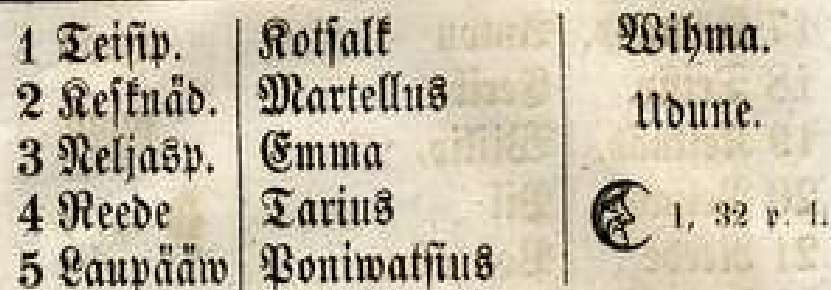 1 Teisip. Kotsalk Wihma.
2 Kesknäd. Martellus Udune.
3 Neljasp. Emma
4 Reede Tarius 1, 32 p. l.
5 Laupääw Poniwatsius